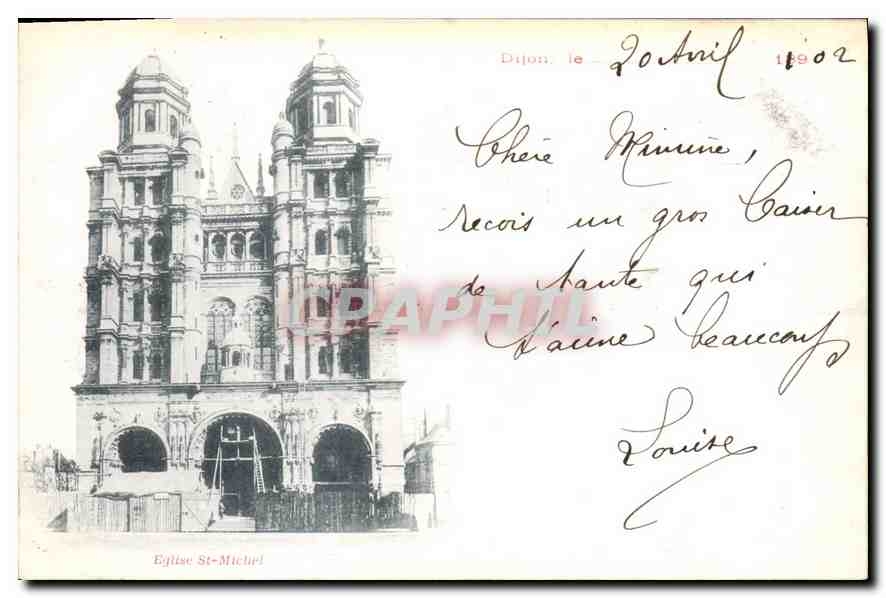 Dijon, le 20 Avril 189 1902
Chère Mimine,
reçois un gros baiser
de tante qui
t'aime beaucoup
Louise
CPAPHIL
Eglise St-Michel